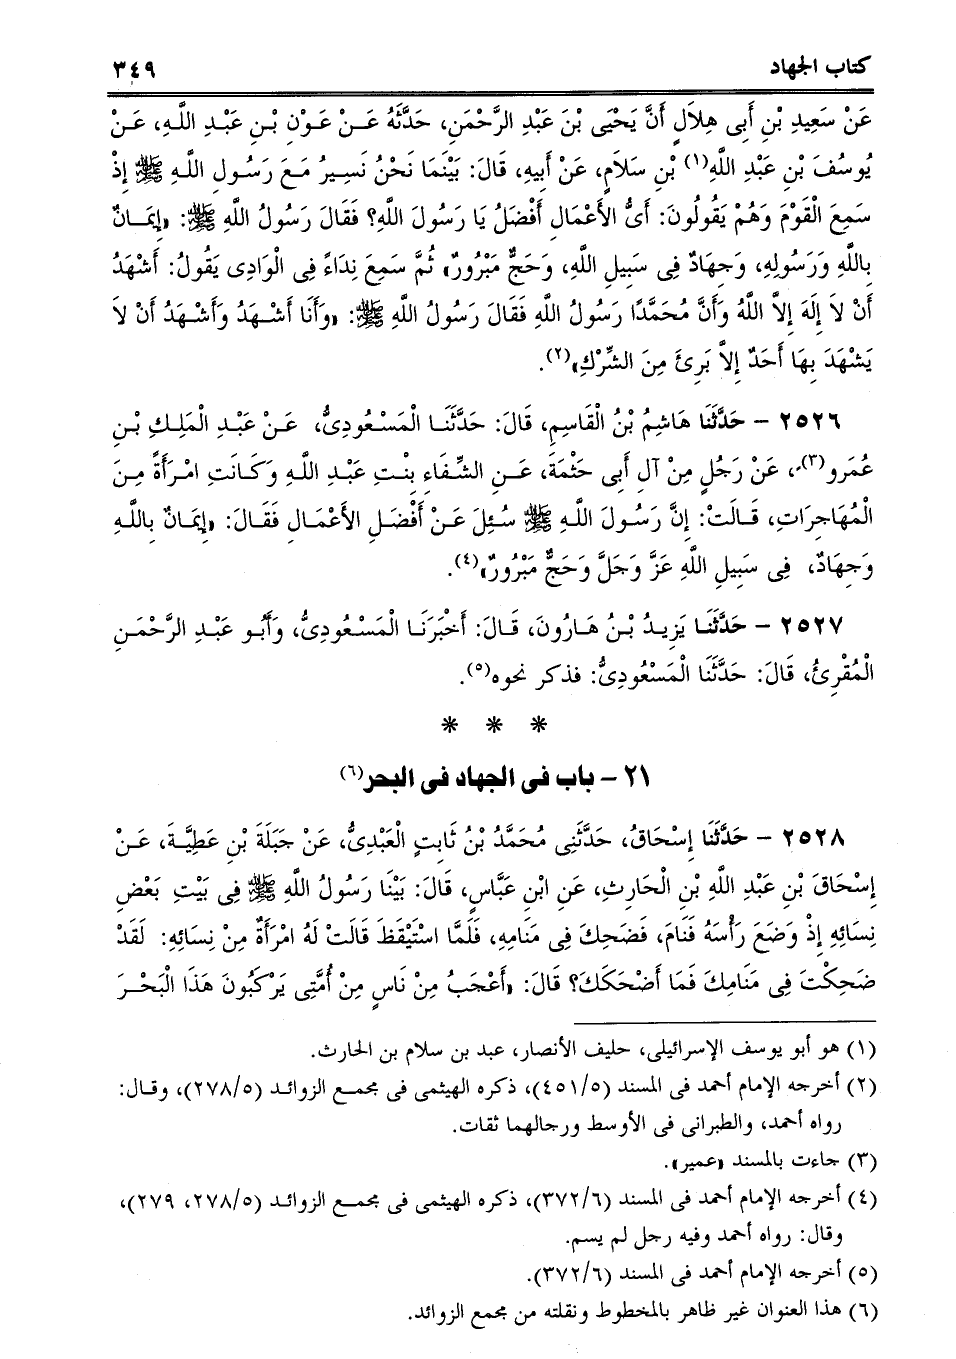 كتاب الجهاد ٣٤٩
عَنْ سَعِيدِ بْنِ أَبِى هِلَالٍ أَنَّ يَحْيَى بْنَ عَبْدِ الرَّحْمَنِ، حَدَّثَهُ عَنْ عَوْنِ بْنِ عَبْدِ اللَّهِ، عَنْ
يُوسُفَ بْنِ عَبْدِ اللَّهِ(١) بْنِ سَلَامٍ، عَنْ أَبِيهِ، قَالَ: بَيْنَمَا نَحْنُ نَسِيرُ مَعَ رَسُولِ اللَّهِ ﷺ إِذْ
سَمِعَ الْقَوْمَ وَهُمْ يَقُولُونَ: أَىُّ الأَعْمَالِ أَفْضَلُ يَا رَسُولَ اللَّهِ؟ فَقَالَ رَسُولُ اللَّهِ ﷺ: «إِيمَانٌ
بِاللَّهِ وَرَسُولِهِ، وَجِهَادٌ فِى سَبِيلِ اللَّهِ، وَحَجٌّ مَبْرُورٌ» ثُمَّ سَمِعَ نِدَاءً فِى الْوَادِى يَقُولُ: أَشْهَدُ
أَنْ لَا إِلَهَ إِلاَّ اللَّهُ وَأَنَّ مُحَمَّدًا رَسُولُ اللَّهِ فَقَالَ رَسُولُ اللَّهِ ﷺ: «وَأَنَا أَشْهَدُ وَأَشْهَدُ أَنْ لاَ
يَشْهَدَ بِهَا أَحَدٌ إِلاَّ بَرِئَ مِنَ الشِّرْكِ»(٢).
٢٥٢٦ – حَدَّثَنَا هَاشِمُ بْنُ الْقَاسِمِ، قَالَ: حَدَّثَنَا الْمَسْعُودِىُّ، عَنْ عَبْدِ الْمَلِكِ بْنِ
عُمَرو(٣)، عَنْ رَجُلٍ مِنْ آلِ أَبِى حَثْمَةَ، عَنِ الشِّفَاءِ بِنْتِ عَبْدِ اللَّهِ وَكَانَتِ امْرَأَةً مِنَ
الْمُهَاجِرَاتِ، قَالَتْ: إِنَّ رَسُولَ اللَّهِ ﷺ سُئِلَ عَنْ أَفْضَلِ الأَعْمَالِ فَقَالَ: «إِيمَانٌ بِاللَّهِ
وَجِهَادٌ، فِى سَبِيلِ اللَّهِ عَزَّ وَجَلَّ وَحَجٌّ مَبْرُورٌ»(٤).
٢٥٢٧ – حَدَّثَنَا يَزِيدُ بْنُ هَارُونَ، قَالَ: أَخْبَرَنَا الْمَسْعُودِىُّ، وَأَبُو عَبْدِ الرَّحْمَنِ
الْمُقْرِئُ، قَالَ: حَدَّثَنَا الْمَسْعُودِىُّ: فذكر نحوه(٥).
* * *
٢١ – باب فى الجهاد فى البحر(٦)
٢٥٢٨ – حَدَّثَنَا إِسْحَاقُ، حَدَّثَنِى مُحَمَّدُ بْنُ ثَابِتٍ الْعَبْدِىُّ، عَنْ جَبَلَةَ بْنِ عَطِيَّةَ، عَنْ
إِسْحَاقَ بْنِ عَبْدِ اللَّهِ بْنِ الْحَارِثِ، عَنِ ابْنِ عَبَّاسٍ، قَالَ: بَيْنَا رَسُولُ اللَّهِ ﷺ فِى بَيْتِ بَعْضِ
نِسَائِهِ إِذْ وَضَعَ رَأْسَهُ فَنَامَ، فَضَحِكَ فِى مَنَامِهِ، فَلَمَّا اسْتَيْقَظَ قَالَتْ لَهُ امْرَأَةٌ مِنْ نِسَائِهِ: لَقَدْ
ضَحِكْتَ فِى مَنَامِكَ فَمَا أَضْحَكَكَ؟ قَالَ: «أَعْجَبُ مِنْ نَاسٍ مِنْ أُمَّتِى يَرْكَبُونَ هَذَا الْبَحْرَ
(١) هو أبو يوسف الإسرائيلى، حليف الأنصار، عبد بن سلام بن الحارث.
(٢) أخرجه الإمام أحمد فى المسند (٤٥١/٥)، ذكره الهيثمى فى مجمع الزوائد (٢٧٨/٥)، وقال:
رواه أحمد، والطبرانى فى الأوسط ورجالهما ثقات.
(٣) جاءت بالمسند «عمير».
(٤) أخرجه الإمام أحمد فى المسند (٣٧٢/٦)، ذكره الهيثمى فى مجمع الزوائد (٢٧٨/٥، ٢٧٩)،
وقال: رواه أحمد وفيه رجل لم يسم.
(٥) أخرجه الإمام أحمد فى المسند (٣٧٢/٦).
(٦) هذا العنوان غير ظاهر بالمخطوط ونقلته من مجمع الزوائد.